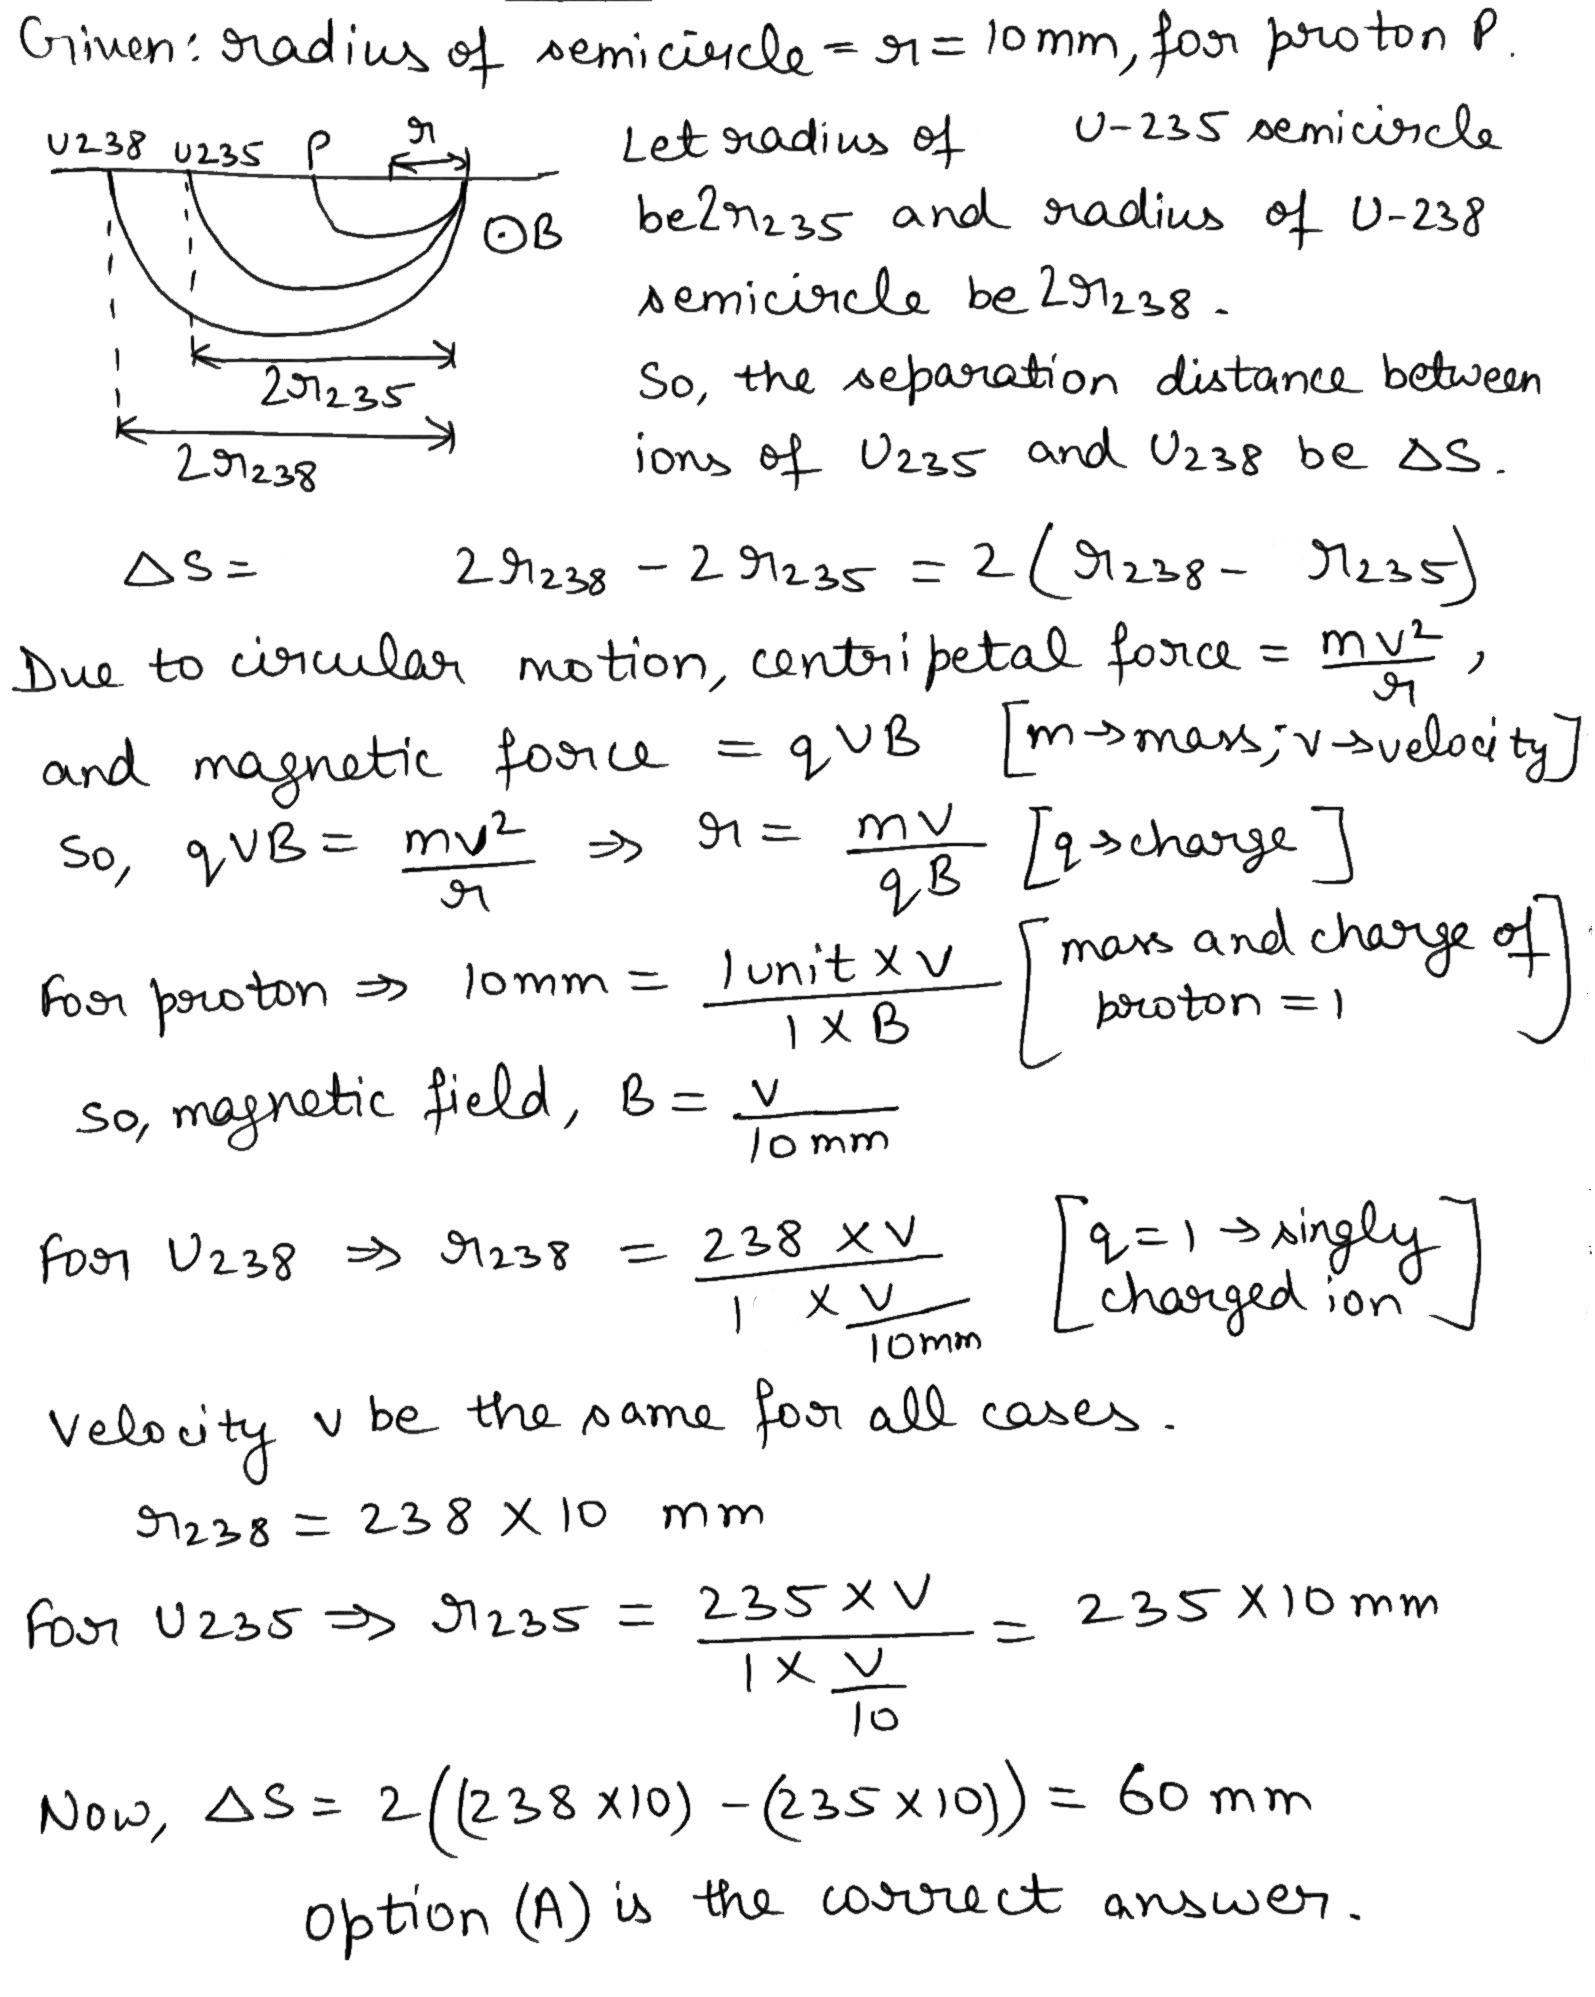 Given: radius of semicircle = r = 10mm, for proton P.
U238 U235 P r
Let radius of U-235 semicircle
⊙B
be 2r₂₃₅ and radius of U-238
semicircle be 2r₂₃₈.
2r₂₃₅
So, the separation distance between
2r₂₃₈
ions of U₂₃₅ and U₂₃₈ be ΔS.
ΔS = 2r₂₃₈ - 2r₂₃₅ = 2(r₂₃₈ - r₂₃₅)
Due to circular motion, centripetal force = mv²/r,
and magnetic force = qVB [m→mass; v→velocity]
So, qVB = mv²/r ⇒ r = mv/qB [q→charge]
For proton ⇒ 10mm = 1 unit × v / 1 × B [mass and charge of proton = 1]
so, magnetic field, B = v/10 mm
For U₂₃₈ ⇒ r₂₃₈ = 238 × v / 1 × v/10mm [q=1→singly charged ion]
Velocity v be the same for all cases.
r₂₃₈ = 238 × 10 mm
For U₂₃₅ ⇒ r₂₃₅ = 235 × v / 1 × v/10 = 235 × 10 mm
Now, ΔS = 2((238 × 10) - (235 × 10)) = 60 mm
Option (A) is the correct answer.